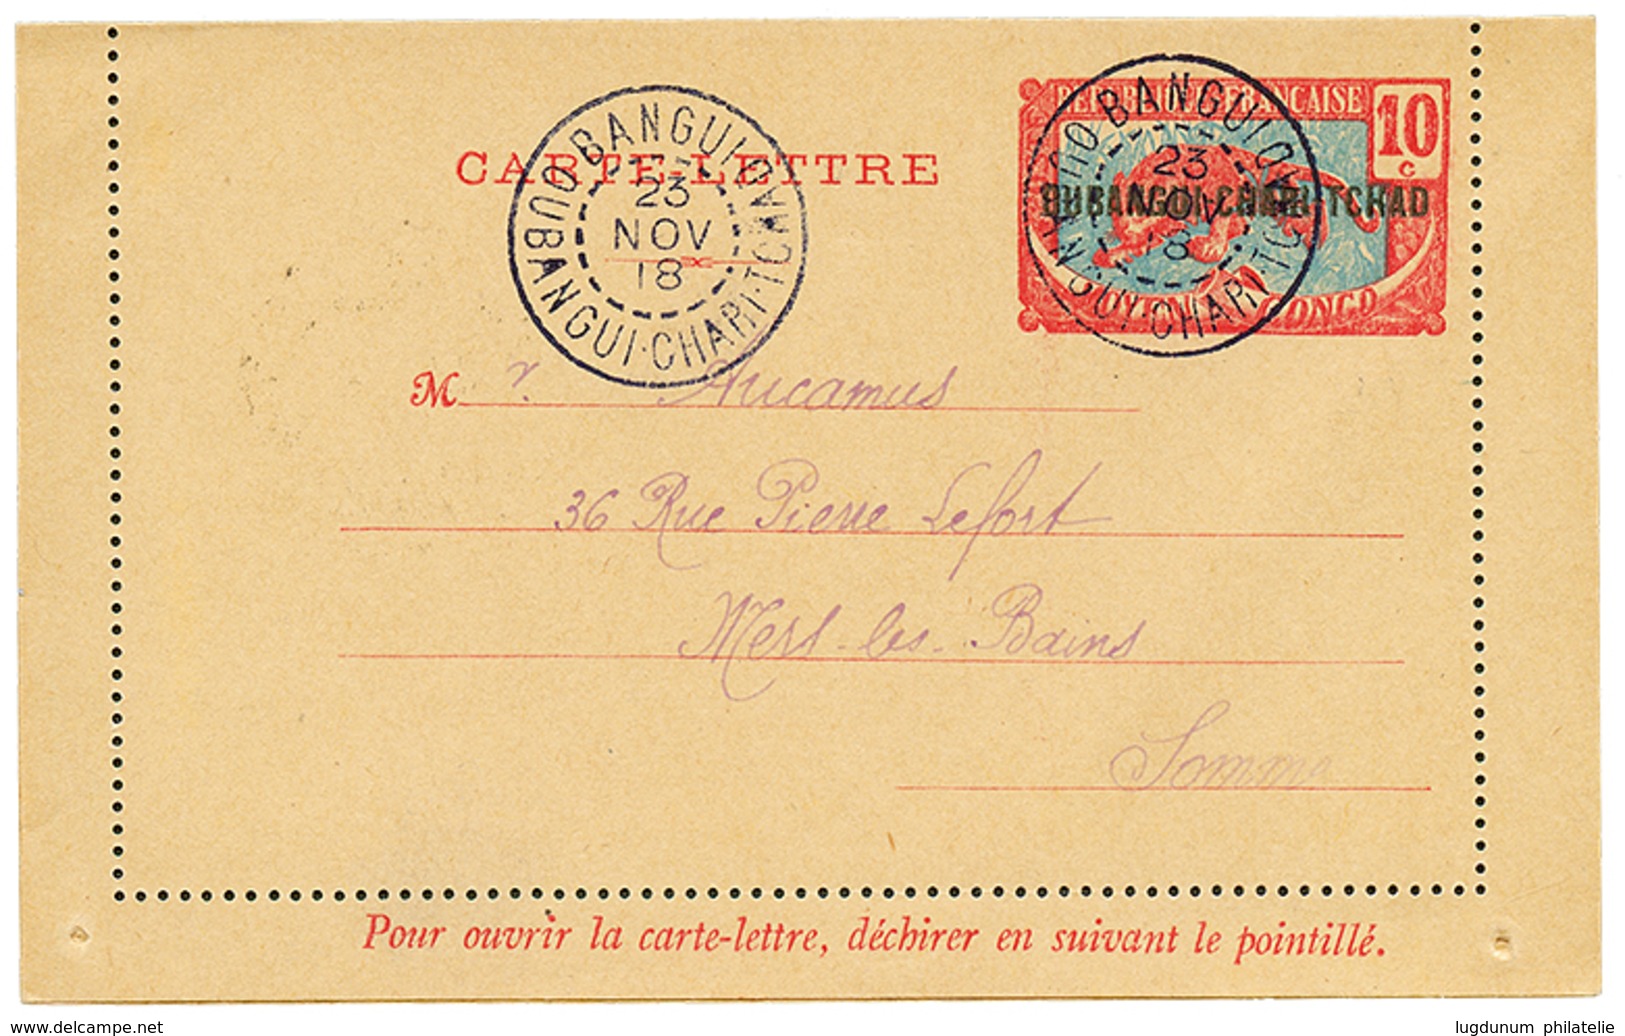 RÉPUBLIQUE FRANÇAISE
10
c
OUBANGUI-CHARI-TCHAD
MOYEN CONGO
BANGUI
23
NOV
18
OUBANGUI·CHARI·TCHAD
CARTE-LETTRE
BANGUI
23
NOV
18
OUBANGUI·CHARI·TCHAD
M r. Aucamus
36 Rue Pierre Lefort
Mers-les-Bains
Somme
Pour ouvrir la carte-lettre, déchirer en suivant le pointillé.
www.delcampe.net
lugdunum philatelie